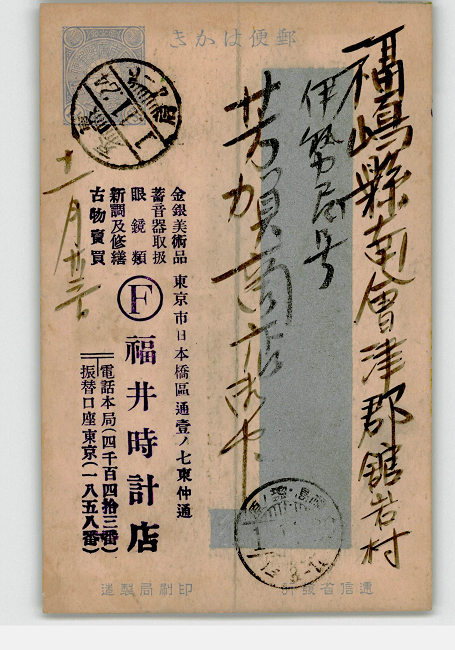 郵便はかき
福嶋縣南會津郡舘岩村
芳賀商店
金銀美術品
蓄音器取扱
眼鏡類
新調及修繕
古物賣買
東京市日本橋區通壹ノ七東仲通
F
福井時計店
電話本局(四千百四拾三番)
振替口座東京(一八五八番)
十一月廿三日
印刷局製造